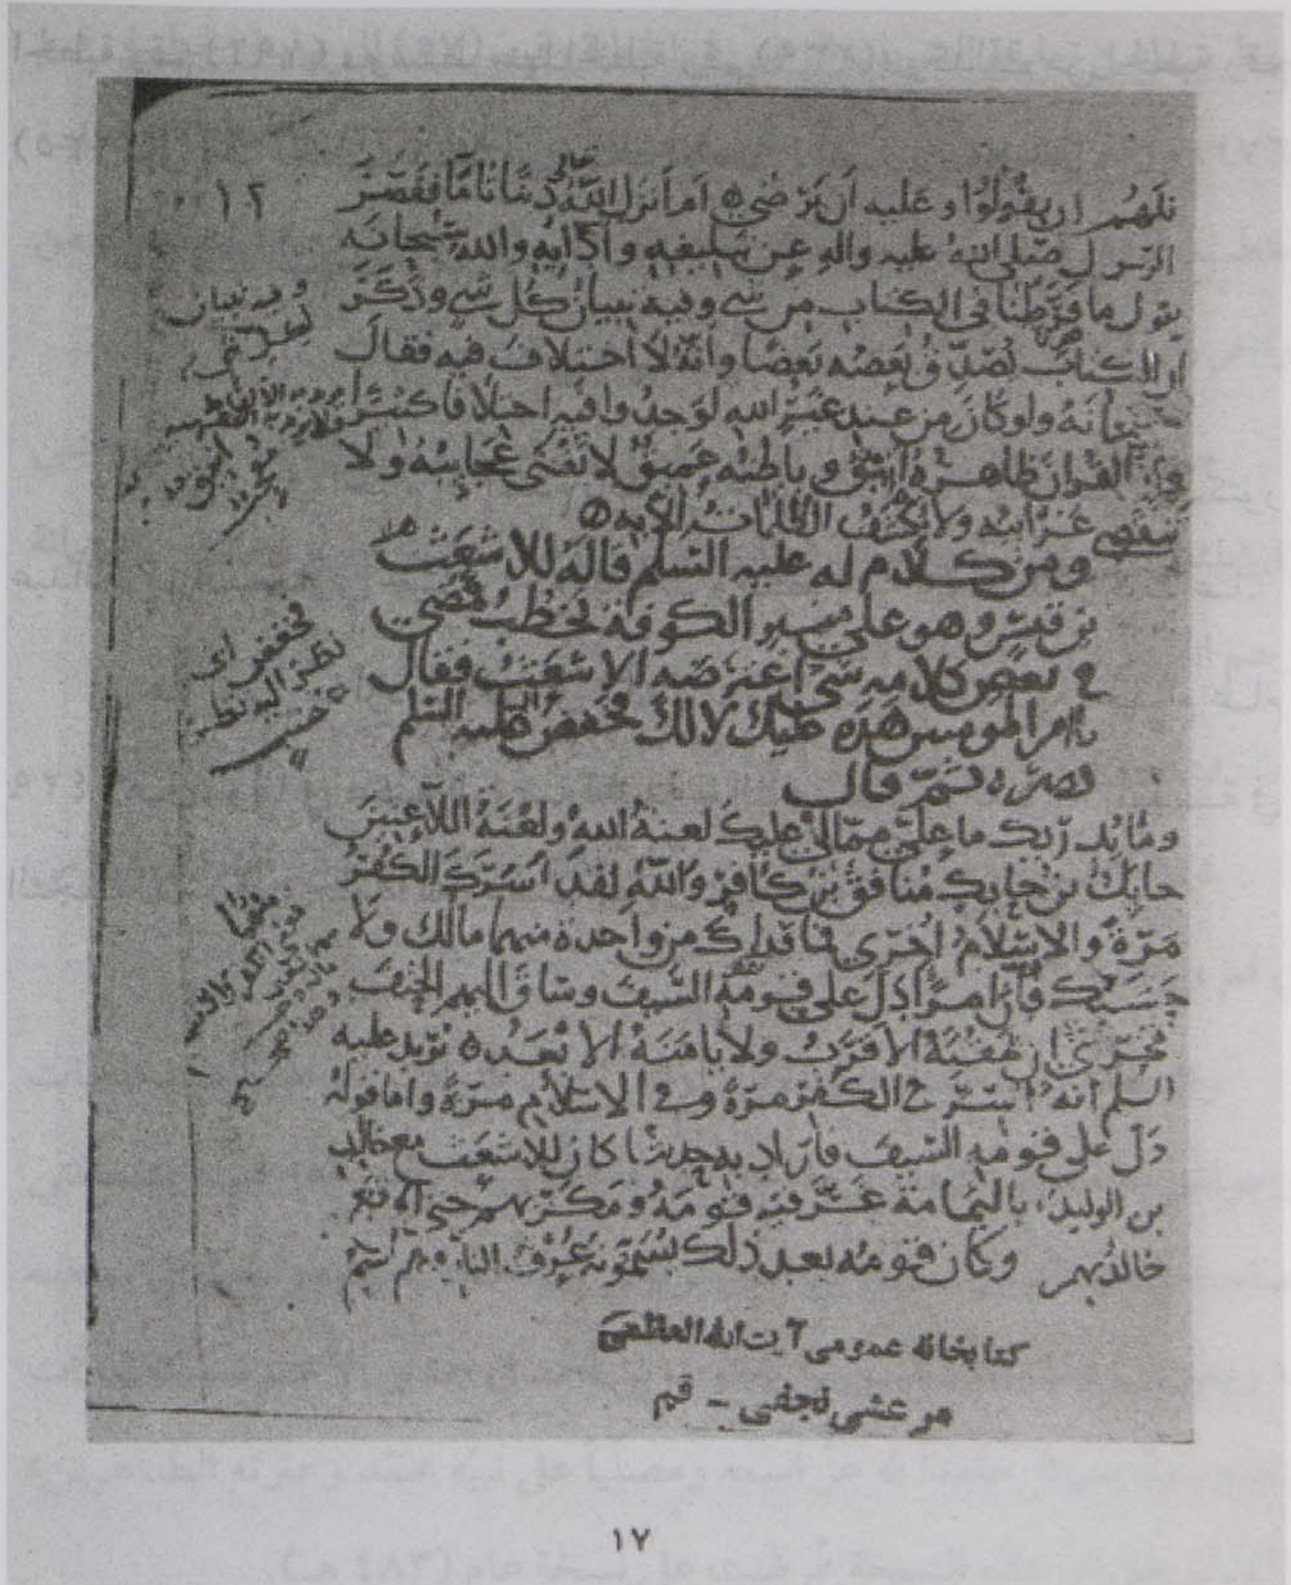 ١٢
فلهم ان يقولوا وعليه ان يرضى ام انزل الله دينا تاما فقصر
الرسول صلى الله عليه واله عن تبليغه وادائه والله سبحانه
يقول ما فرطنا في الكتاب من شي وفيه تبيان كل شي وذكر
ان الكتاب يصدق بعضه بعضا وانه لا اختلاف فيه فقال
سبحانه ولو كان من عند غير الله لوجدوا فيه اختلافا كثيرا
وان القران ظاهره انيق وباطنه عميق لا تفنى عجايبه ولا
تنقضي غرائبه ولا تكشف الظلمات الا به
ومن كلام له عليه السلم قاله للاشعث
بن قيس وهو على منبر الكوفة يخطب فمضى
في بعض كلامه شي اعترضه الاشعث فقال
يا امير المومنين هذه عليك لا لك فخفض عليه السلم
بصره ثم قال
وما يدريك ما علي مما لي عليك لعنة الله ولعنة اللاعنين
حايك بن حايك منافق بن كافر والله لقد اسرك الكفر
مرة والاسلام اخرى فما فداك من واحدة منهما مالك ولا
حسبك وان امرا دل على قومه السيف وساق اليهم الحتف
لحري ان يمقته الاقرب ولا يامنه الابعد يريد عليه
السلم انه اسر في الكفر مرة وفي الاسلام مرة واما قوله
دل على قومه السيف فاراد به حديثا كان للاشعث مع خالد
بن الوليد باليمامة غر فيه قومه ومكر بهم حتى اوقع
خالد بهم وكان قومه بعد ذلك يسمونه عرف النار وهم اسم
وفيه تبيان
لكل شي
فخفض اي
كتابخانه عمومى آيت الله العظمى
مرعشى نجفى - قم
١٧